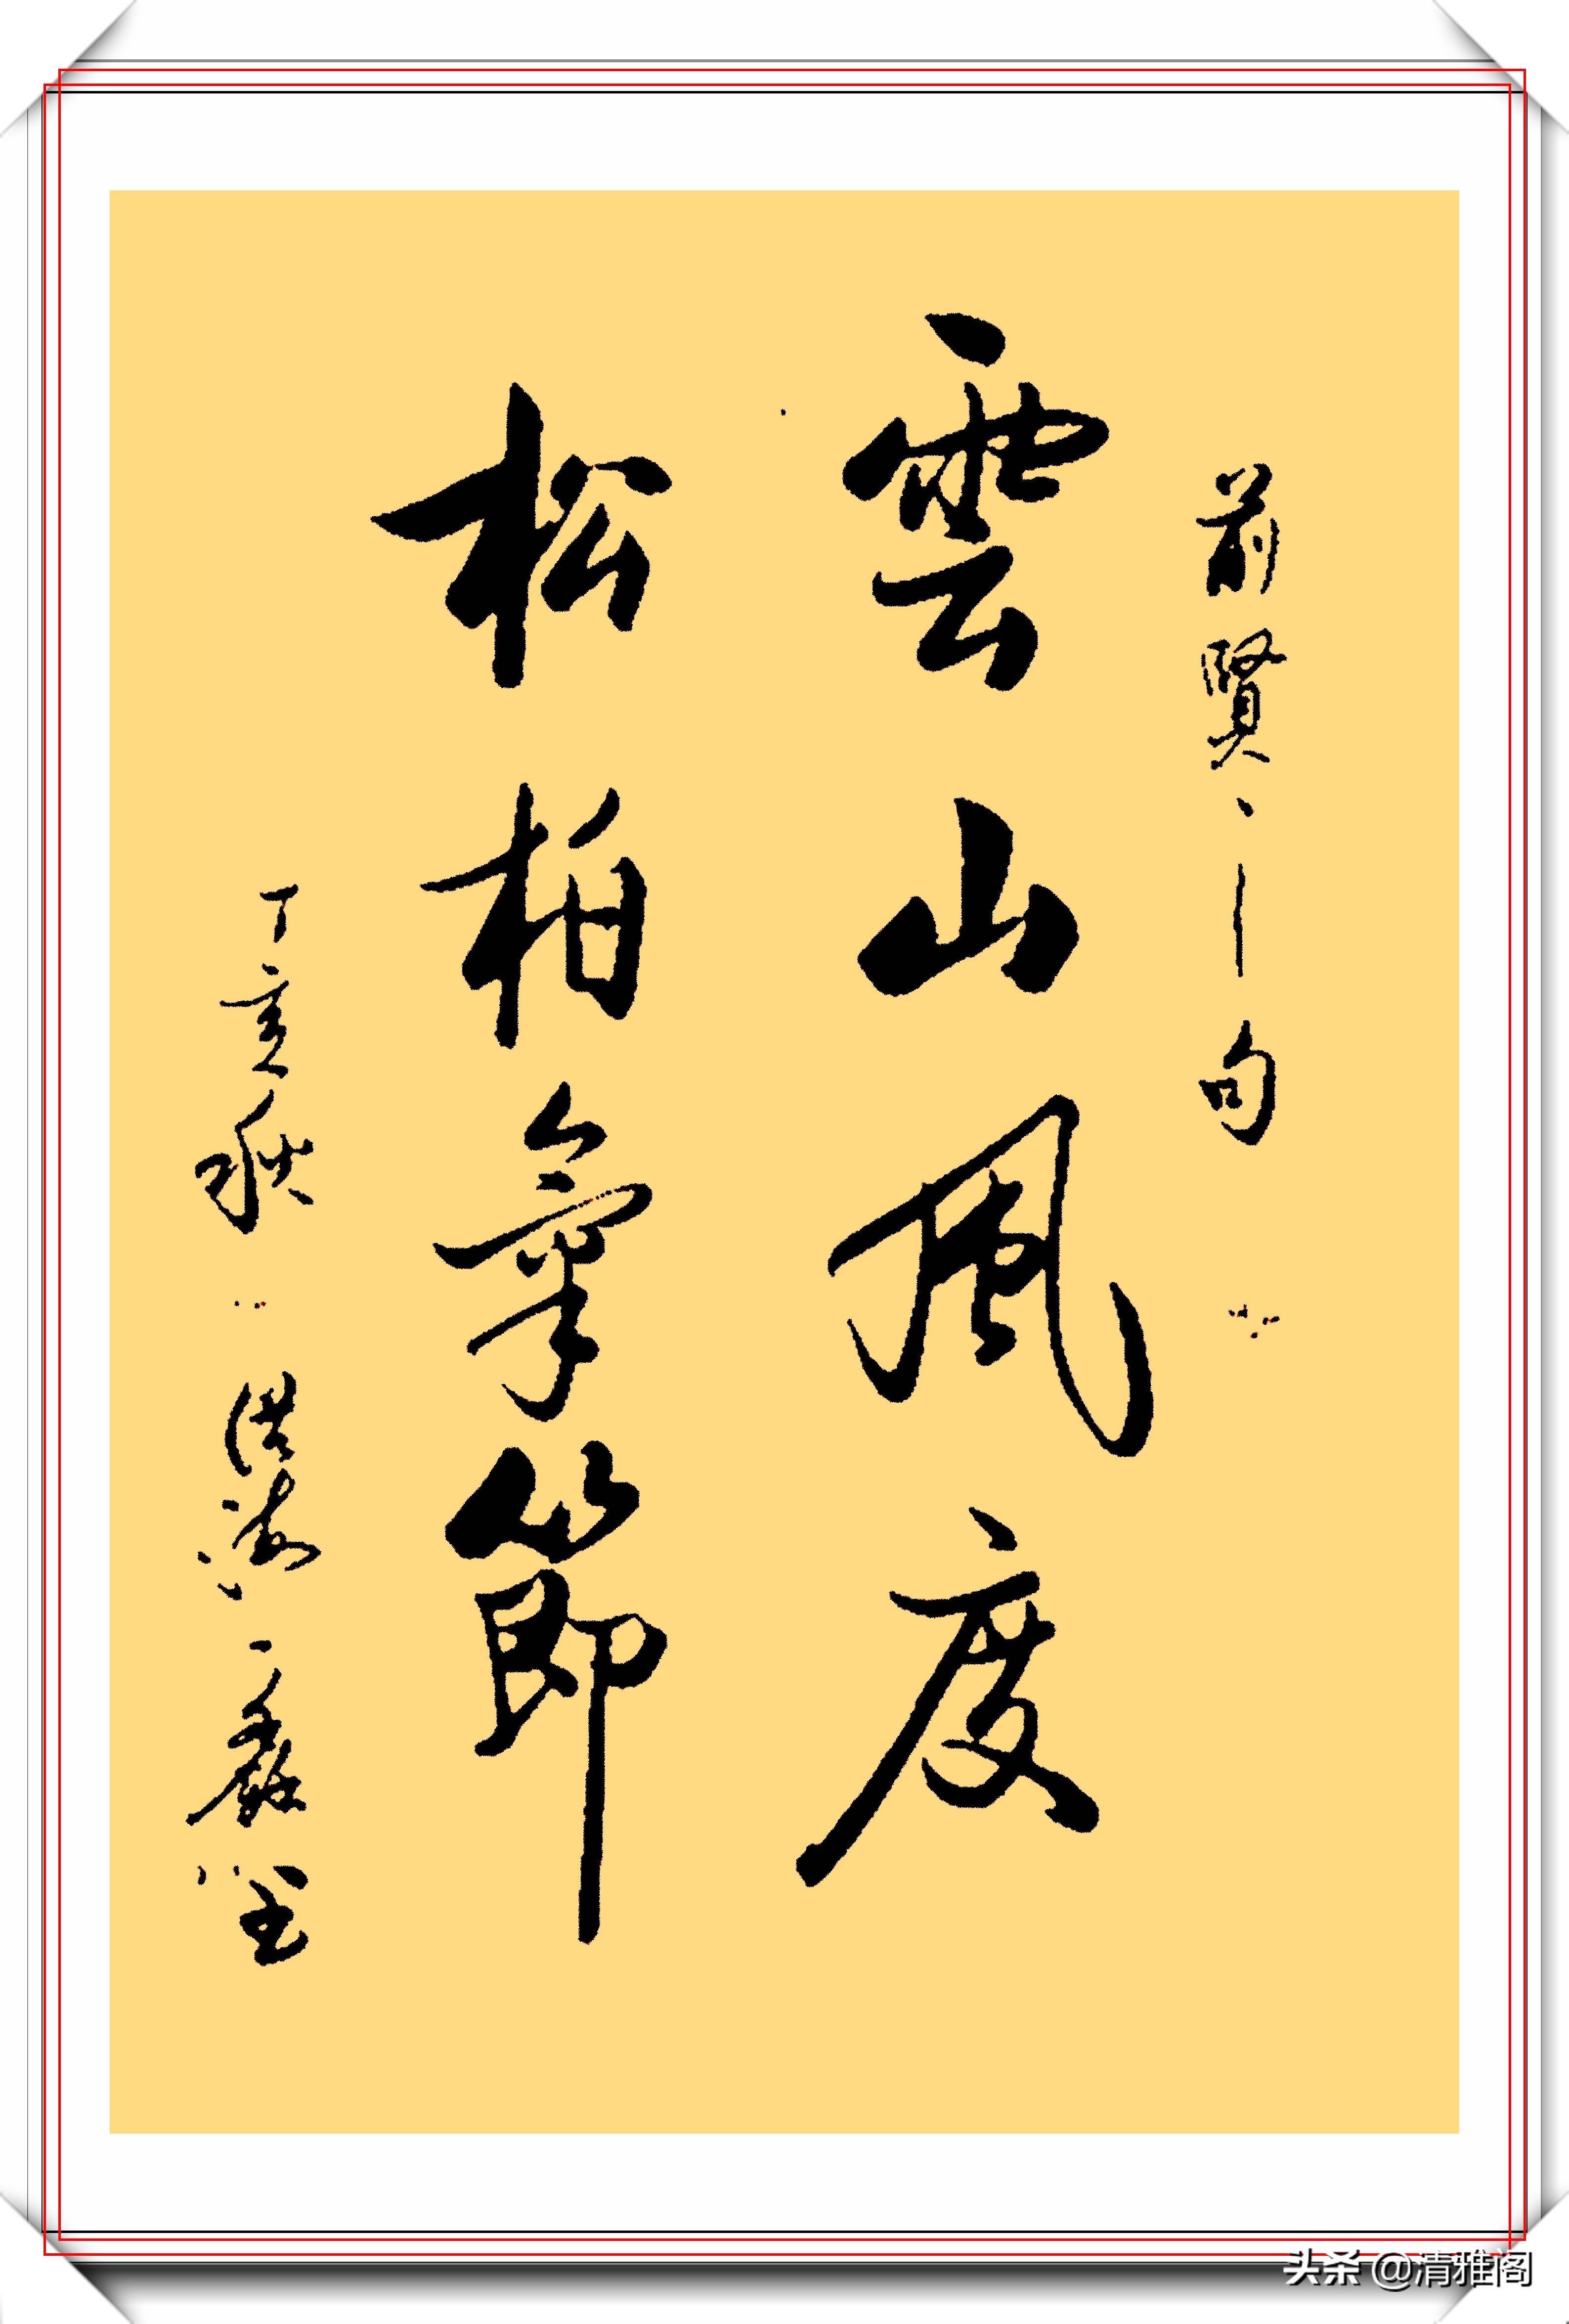 前賢句
雲山風度
松柏氣節
丁亥秋
头条 @清雅阁